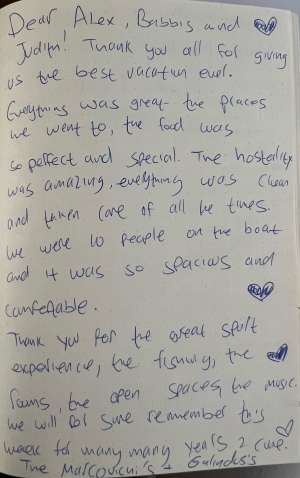 Dear Alex, Babbis and
Judith! Thank you all for giving
us the best vacation ever.
Everything was great the places
we went to, the food was
so perfect and special. The hostality
was amazing, everything was clean
and taken care of all the times.
We were 10 people on the boat
and it was so spacius and
comfetable.
Thank you for the great spirit
experience, the fishing, the
rooms, the open spaces, the music.
We will for sure remember this
week for many many years 2 come.
The Marcovichi's +